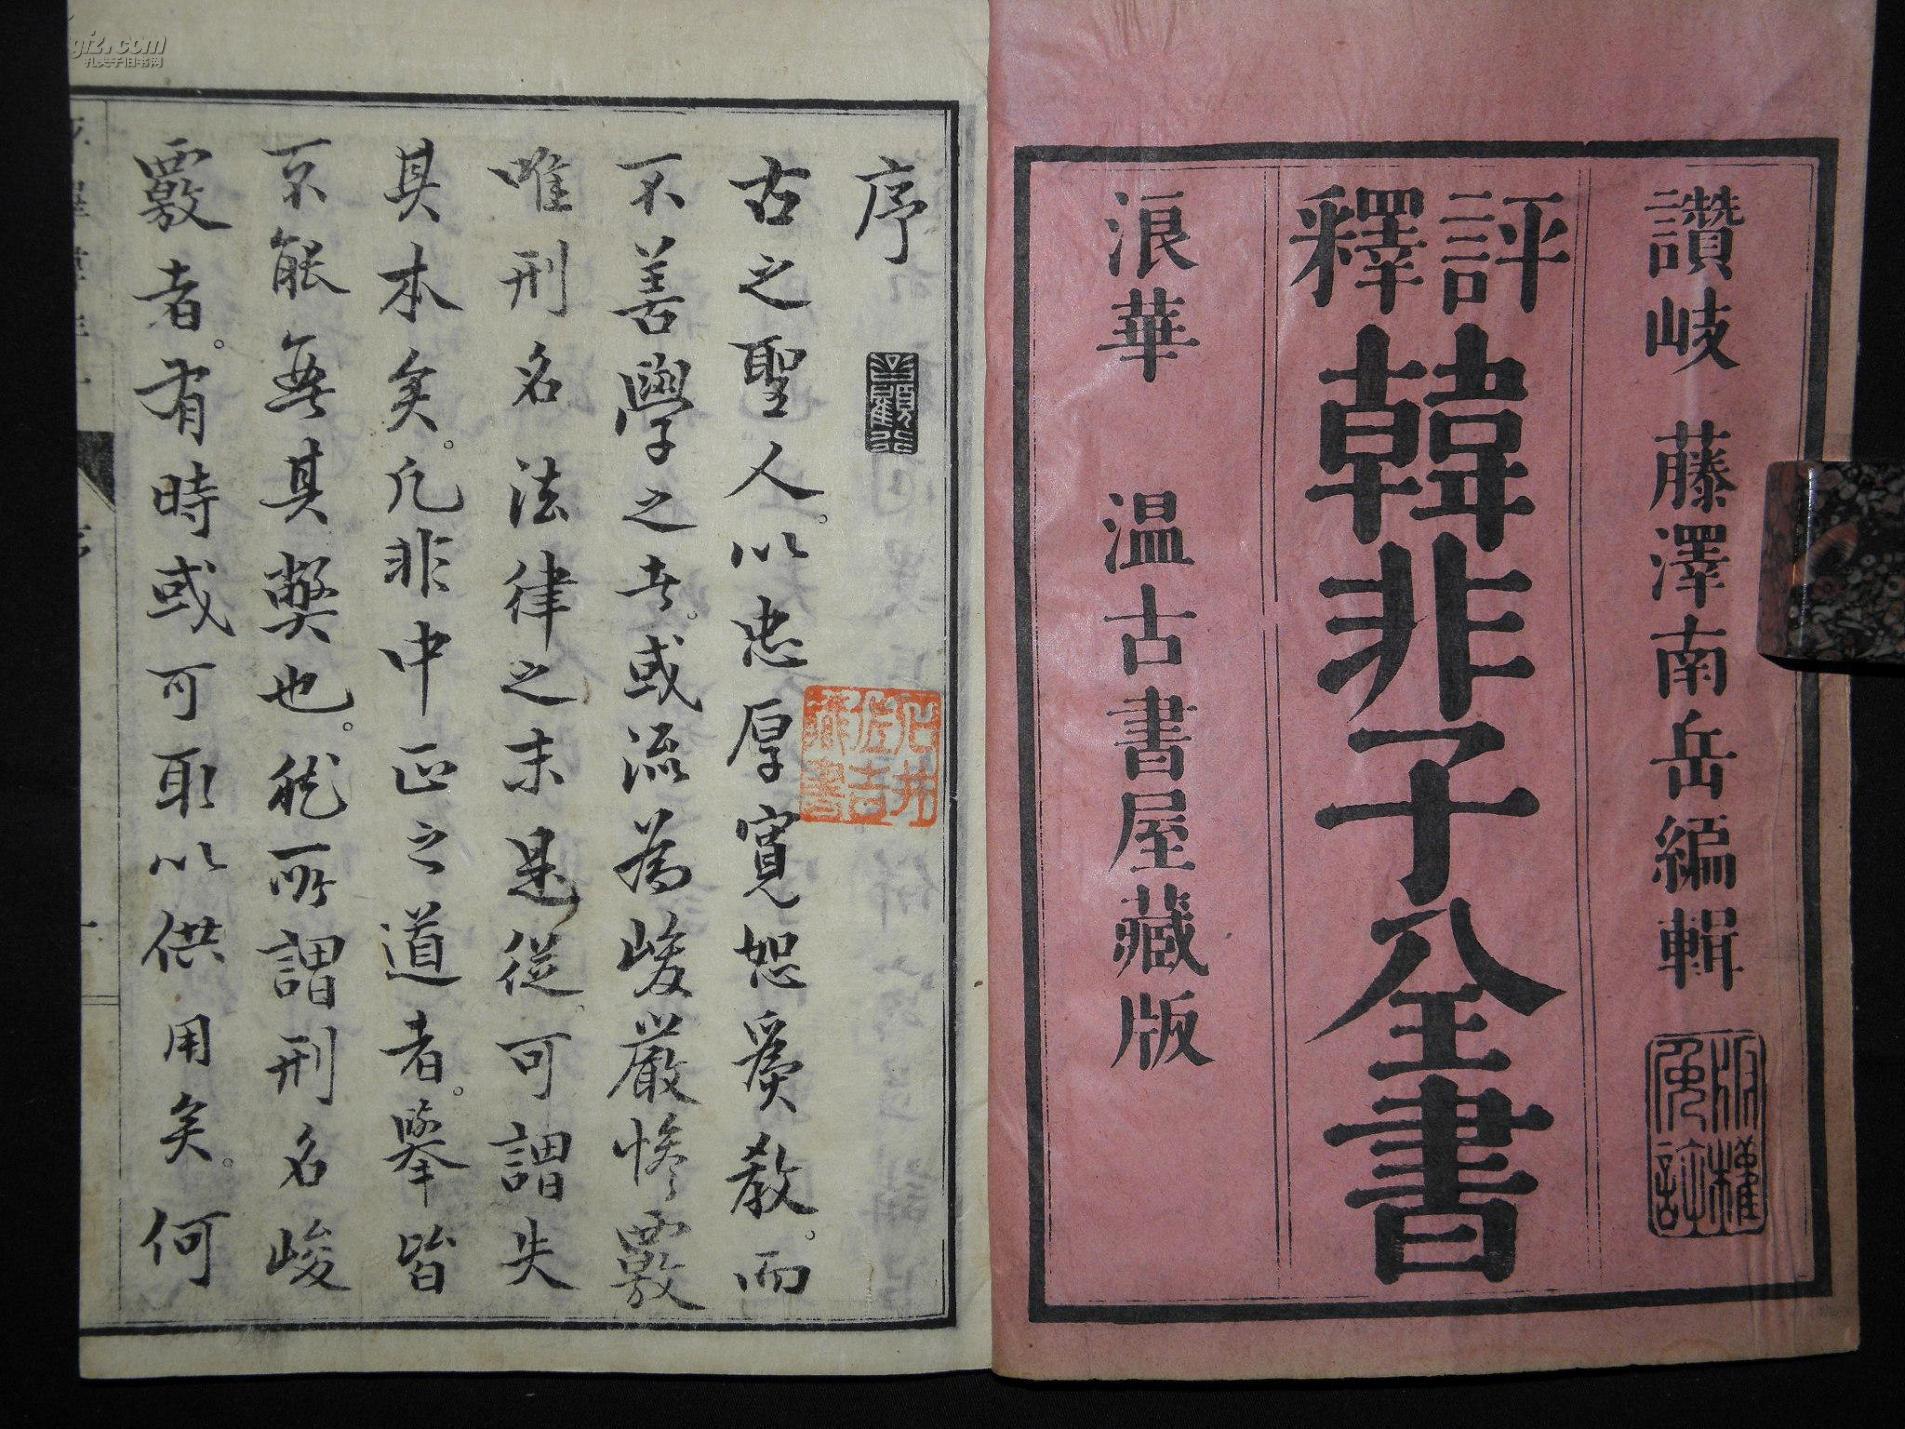 讚岐 藤澤南岳編輯
版權免許
評釋
韓非子全書
浪華 温古書屋藏版
序
石井佐吉藏書
古之聖人。以忠厚寬恕爲教。而
不善學之者。或流為峻嚴慘覈
唯刑名法律之末是從。可謂失
其本矣。凡非中正之道者。舉皆
不能無其弊也。然所謂刑名峻
覈者。有時或可取以供用矣。何
孔夫子旧书网